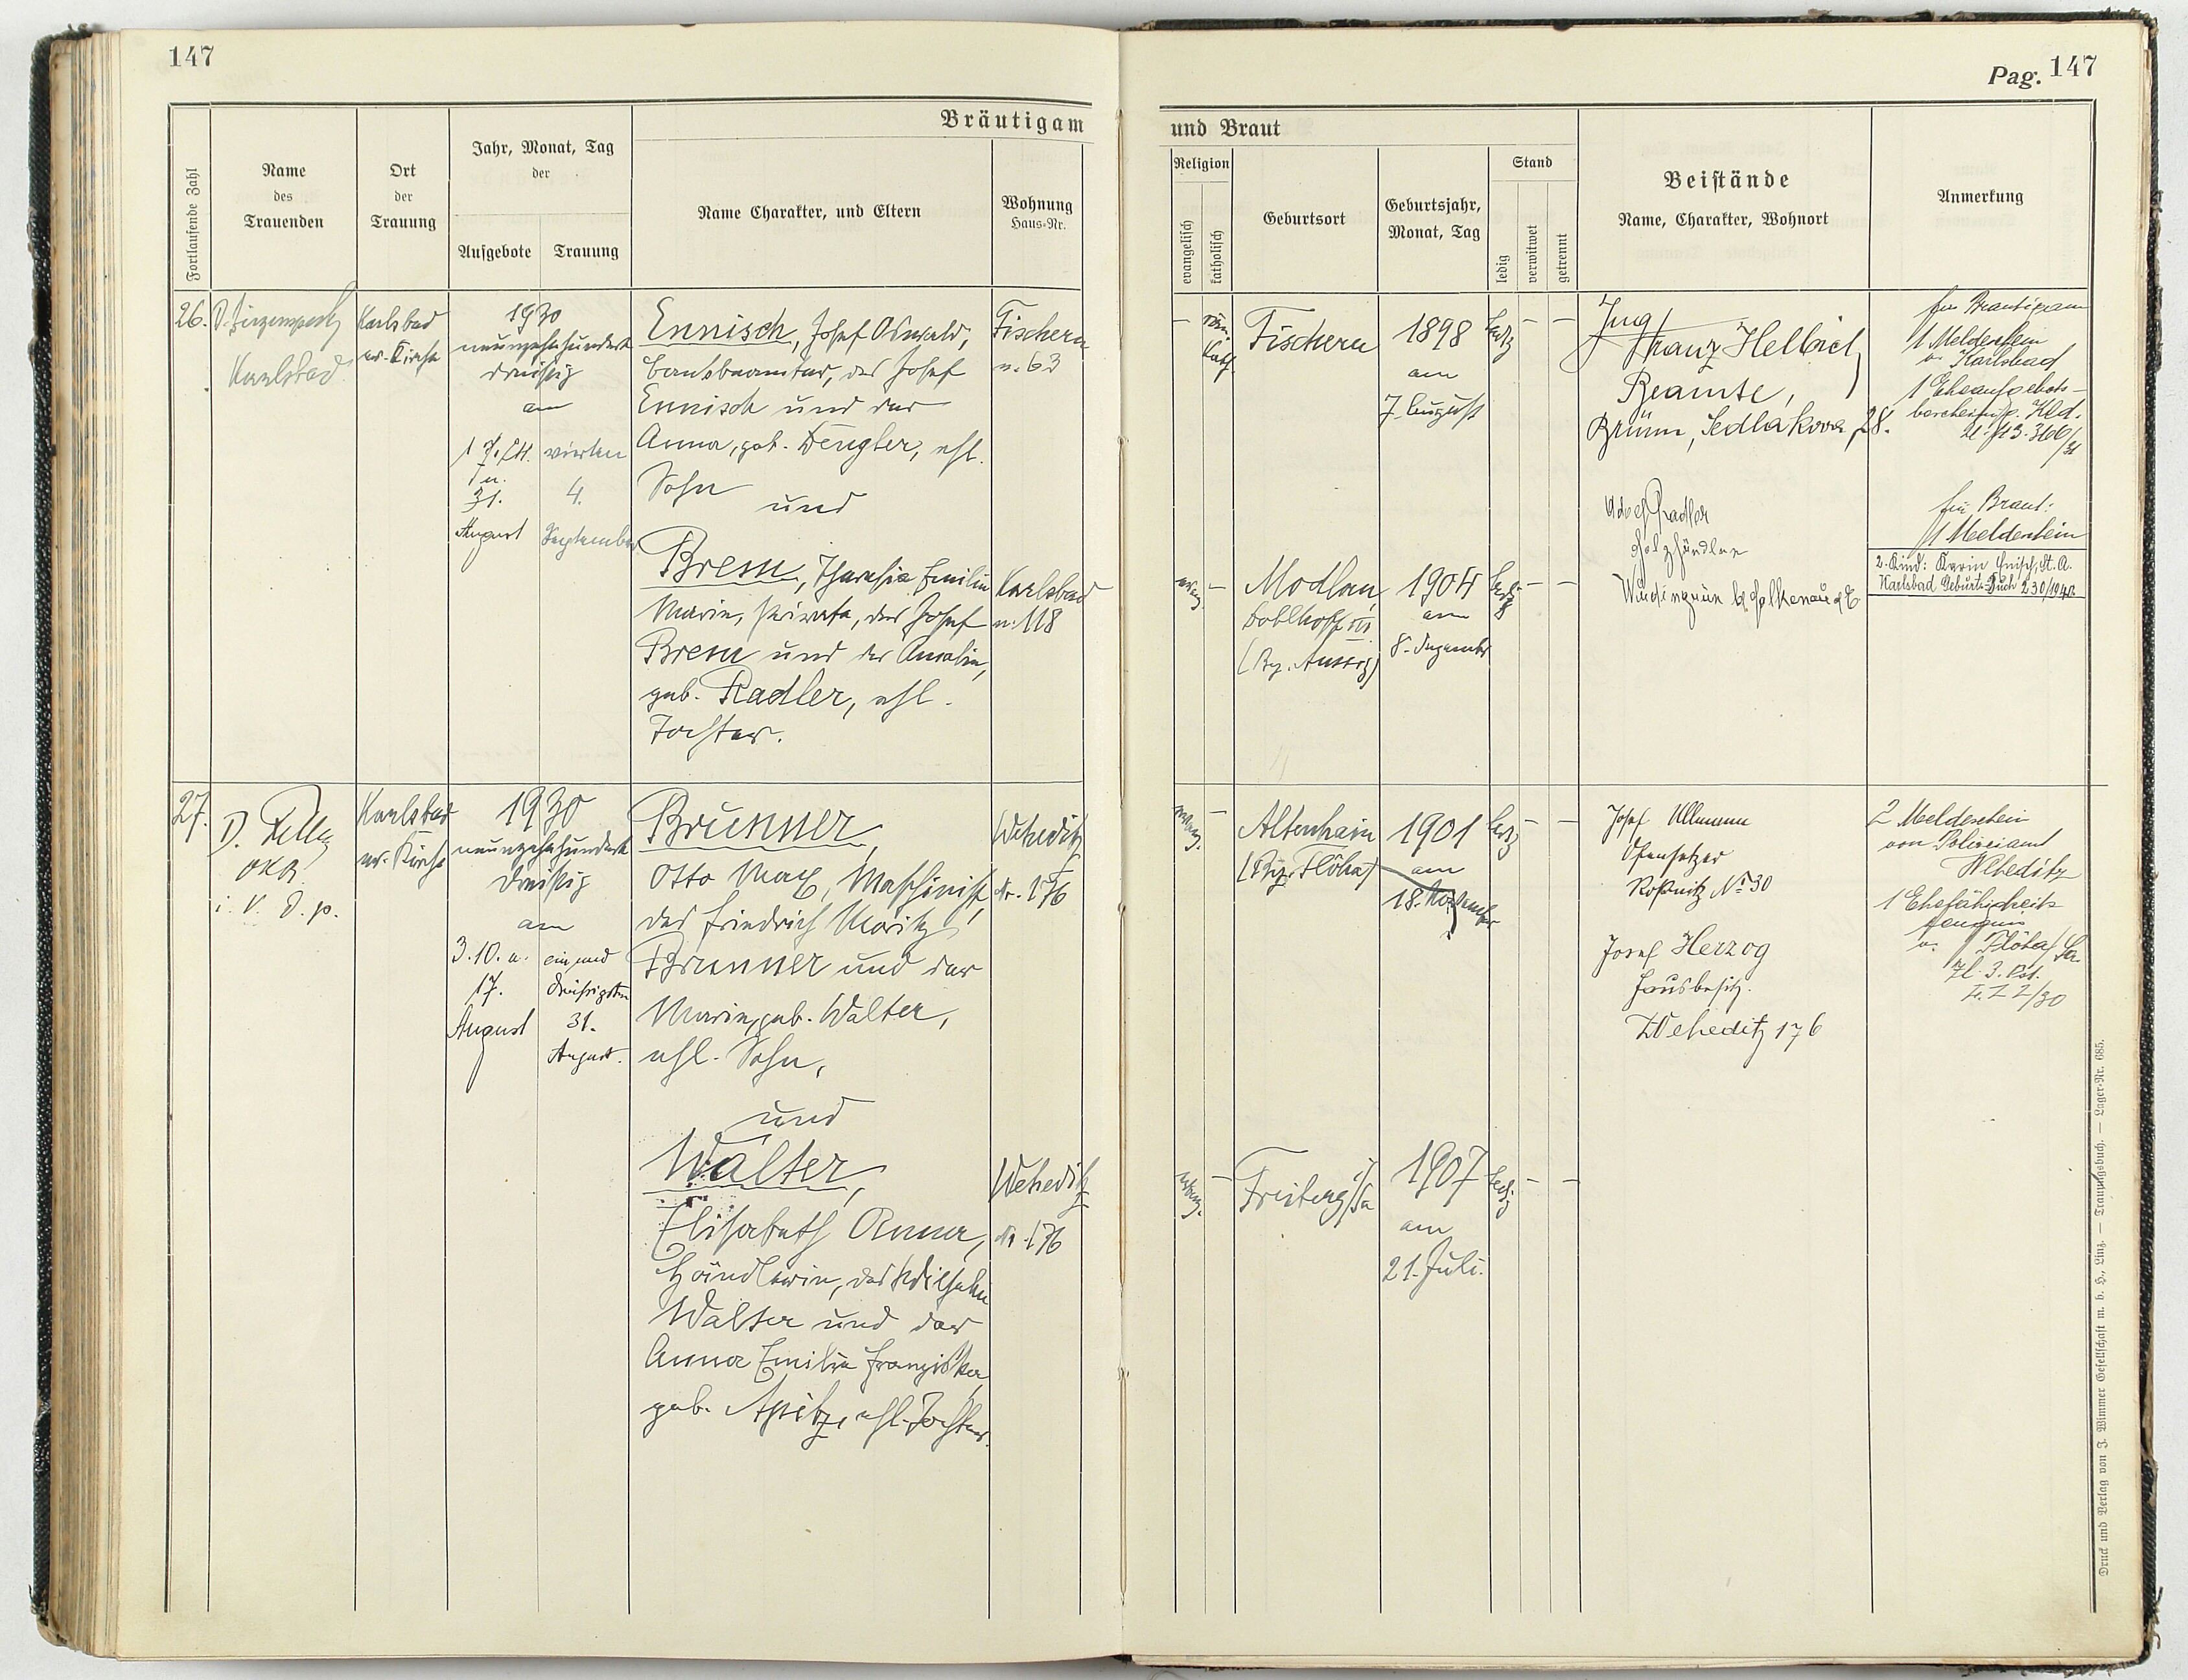 147
Pag. 147
Bräutigam
und Braut
Fortlaufende Zahl
Name
des
Trauenden
Ort
der
Trauung
Jahr, Monat, Tag
der
Aufgebote
Trauung
Name Charakter, und Eltern
Wohnung
Haus-Nr.
Religion
evangelisch
katholisch
Geburtsort
Geburtsjahr,
Monat, Tag
Stand
ledig
verwitwet
getrennt
Beistände
Name, Charakter, Wohnort
Anmerkung
26.
Karlsbad
Karlsbad
ev. Kirche
1930
neunzehnhundert
dreißig
am
17. 24.
u.
31.
August
vierten
4.
September
Ennisch, Josef Oswald,
Bankbeamter, des Josef
Ennisch und der
Anna, geb. Dengler, ehl.
Sohn
und
Brem, Theresia Emilie
Marie, Private, des Josef
Brem und der Amalie,
geb. Radler, ehl.
Tochter.
Fischern
n. 63
Karlsbad
n. 118
—
röm.
kath.
Fischern
1898
am
7. August
ledig
— —
evang. —
Modlan
(Bz. Aussig)
1904
am
8. Dezember
ledig
— —
Ing.
Franz Helbich
Beamte,
Brünn, Sedlakova 28.
Adolf Radler
Holzhändler
Wudingrün b. Falkenau a/E
für Bräutigam
1 Meldeschein
v. Karlsbad
1 Eheaufgebots-
für Braut:
1 Meldeschein
2. Kind: Karin Enisch, St. A.
Karlsbad Geburts-Buch 230/1940.
27.
OKR.
i. V. d. p.
Karlsbad
ev. Kirche
1930
neunzehnhundert
dreißig
am
3. 10. u.
17.
August
ein und
dreißigsten
31.
August.
Brunner,
Otto Max, Maschinist,
des Friedrich Moritz
Brunner und der
Marie, geb. Walter,
ehl. Sohn,
und
Walter,
Elisabeth Anna,
Händlerin, des Wilhelm
Walter und der
Anna Emilie Franziska,
geb. Apitz, ehl. Tochter.
Weheditz
Nr. 176
Weheditz
Nr. 176
evang. —
Altenhain
(Bz. Flöha)
1901
am
18. November
ledig
— —
evang. —
Freiberg i/Sa
1907
am
21. Juli.
ledig
— —
Josef Ullmann
Ofensetzer
Roßnitz No 30
Josef Herzog
Hausbesitz.
Weheditz 176
2 Meldeschein
von Polizeiamt
Weheditz
1 Ehefähigkeits
zeugnis
v. Flöha/Sa.
Druck und Verlag von J. Wimmer Gesellschaft m. b. H., Linz. — Trauungsbuch. — Lager-Nr. 685.